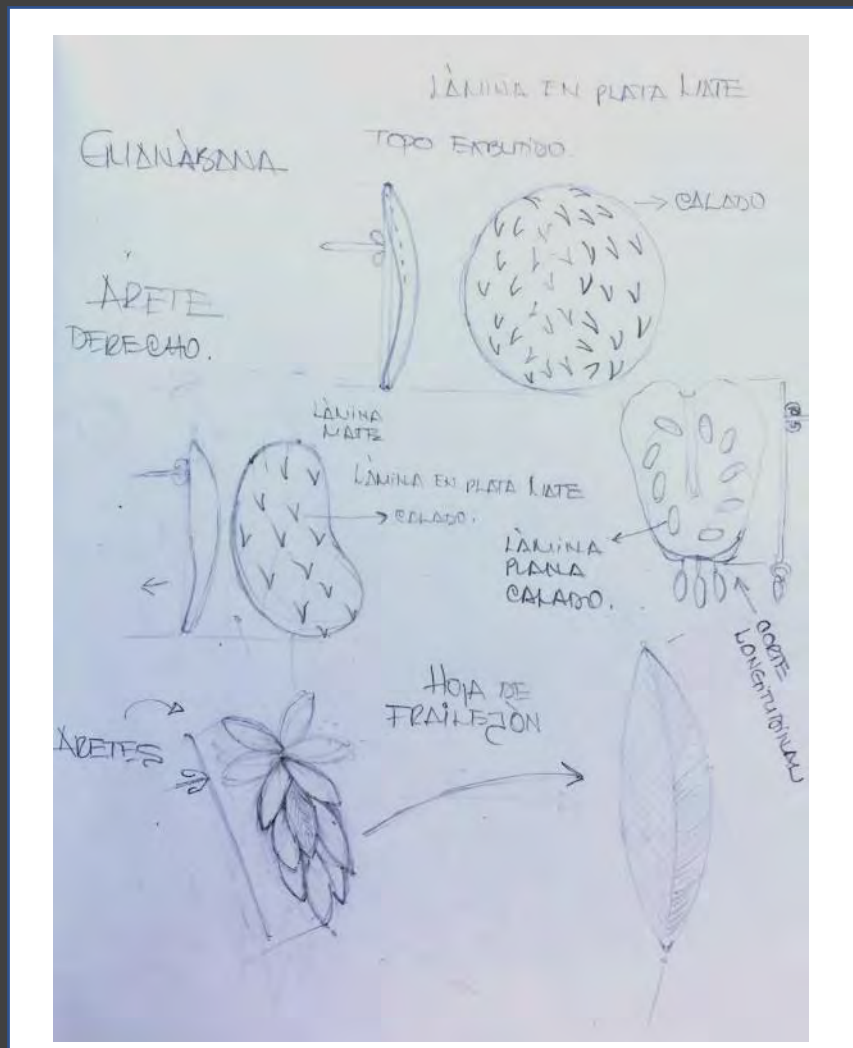 LÀMINA EN PLATA MATE
GUANÀBANA
TOPO EMBUTIDO.
CALADO
ÀRETE
DERECHO.
LÀMINA
MATE
LÀMINA EN PLATA MATE
CALADO.
LÀMINA
PLANA
CALADO.
CORTE
LONGITUDINAL
HOJA DE
FRAILEJÒN
ÀRETES